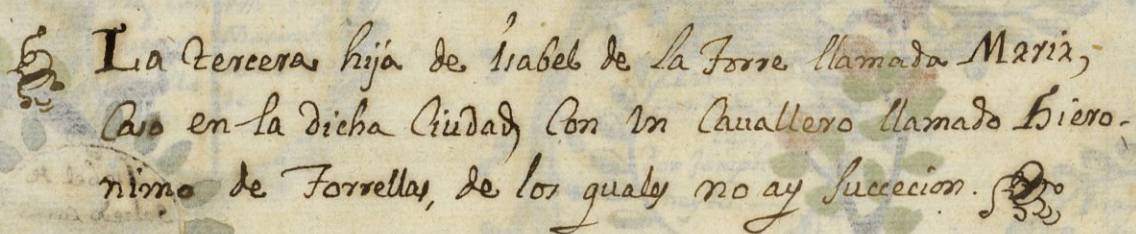 La tercera hija de Isabel de la Torre llamada Maria,
Caso en la dicha Ciudad, con un Cavallero llamado Hiero-
nimo de Torrellas, de los quales no ay succecion.